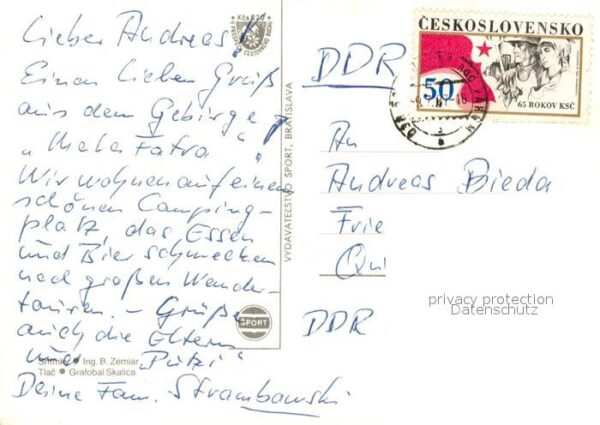 Lieber Andreas!
Einen lieben Gruß
aus dem Gebirge
"Mala Fatra"
Wir wohnen auf einem
schönen Camping-
platz, das Essen
und Bier schmecken
nach großen Wander-
touren. – Grüße
auch die Eltern
und "Putzi"
Deine Fam. Strambowski
Kčs 0,20
VYDAVATEĽSTVO ŠPORT, BRATISLAVA
ŠPORT
Snímka ● Ing. B. Zemiar
Tlač ● Grafobal Skalica
ČESKOSLOVENSKO
50
65 ROKOV KSČ
DDR
An
Andreas Bieda
Frie
Qui
DDR
privacy protection
Datenschutz